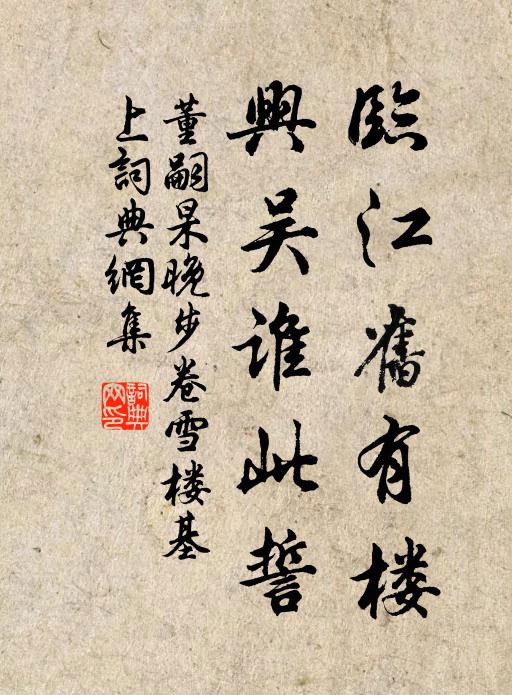 臨江舊有楼
興吴誰此誓
董嗣杲晚步卷雪楼基
上詞典網集
詞典网印